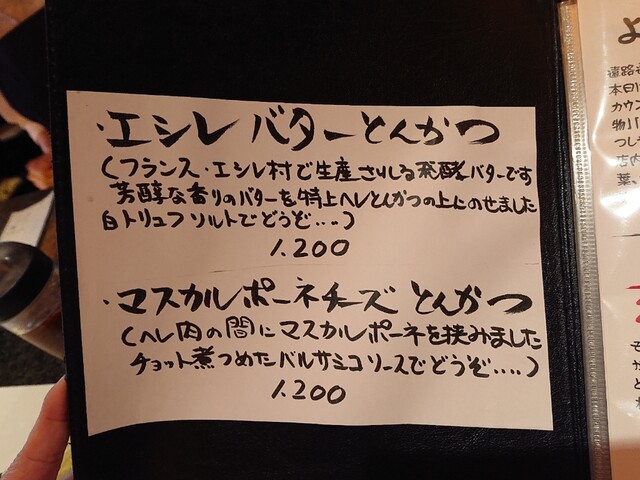 ・エシレバターとんかつ
(フランス・エシレ村で生産されてる発酵バターです
芳醇な香りのバターを特上ヘレとんかつの上にのせました
白トリュフソルトでどうぞ....)
1.200
・マスカルポーネチーズとんかつ
(ヘレ肉の間にマスカルポーネを挟みました
チョット煮つめたバルサミコソースでどうぞ....)
1.200
遠路
本日
カウン
物バ
つし
店内
葉、